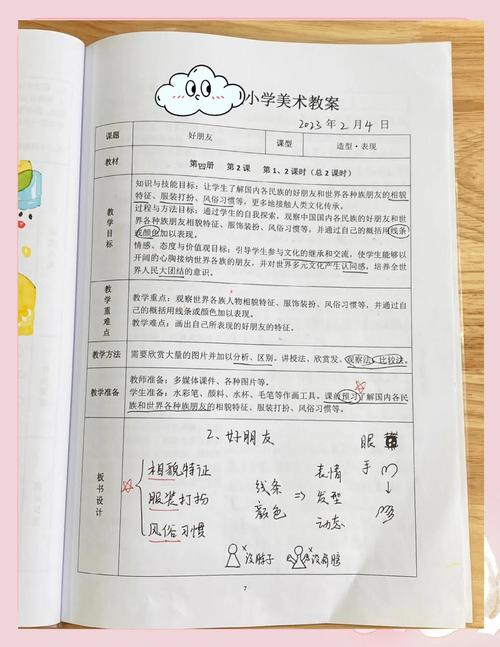 小学美术教案
2023年2月4日
课题 好朋友 课型 造型·表现
教材 第四册 第2课 第1、2课时（总2课时）
教学目标
知识与技能目标：让学生了解国内各民族的好朋友和世界各种族朋友的相貌
特征、服装打扮、风俗习惯等，更多地接触人类文化传承。
过程与方法目标：通过学生的自我探索，观察中国国内各民族的好朋友和世
界各种族朋友相貌特征、服装打扮、风俗习惯等，并通过自己的概括用线条
或颜色加以表现。
情感、态度与价值观目标：引导学生参与文化的继承和交流，使学生能够以
开阔的心胸接纳世界各族的朋友，并对世界多元文化产生认同感，培养全世
界人民大团结的意识。
教学重难点
教学重点：观察世界各族人物相貌特征、服饰装扮、风俗习惯等，并通过自
己的概括用线条或颜色加以表现。
教学难点：画出自己所表现的好朋友的特征。
教学方法 需要欣赏大量的图片并加以分析、区别。讲授法、欣赏发、观察法、比较法。
教学准备
教师准备：多媒体课件、各种图片等。
学生准备：水彩笔、颜料、水杯、毛笔等作画工具。课前预习了解国内各民
族和世界各种族朋友的相貌特征、服装打扮、风俗习惯等。
板书设计
2、好朋友
相貌特征
服装打扮
风俗习惯
线条
颜色
⇒
表情
发型
动态
眼
手
没脖子
没肩膀
7